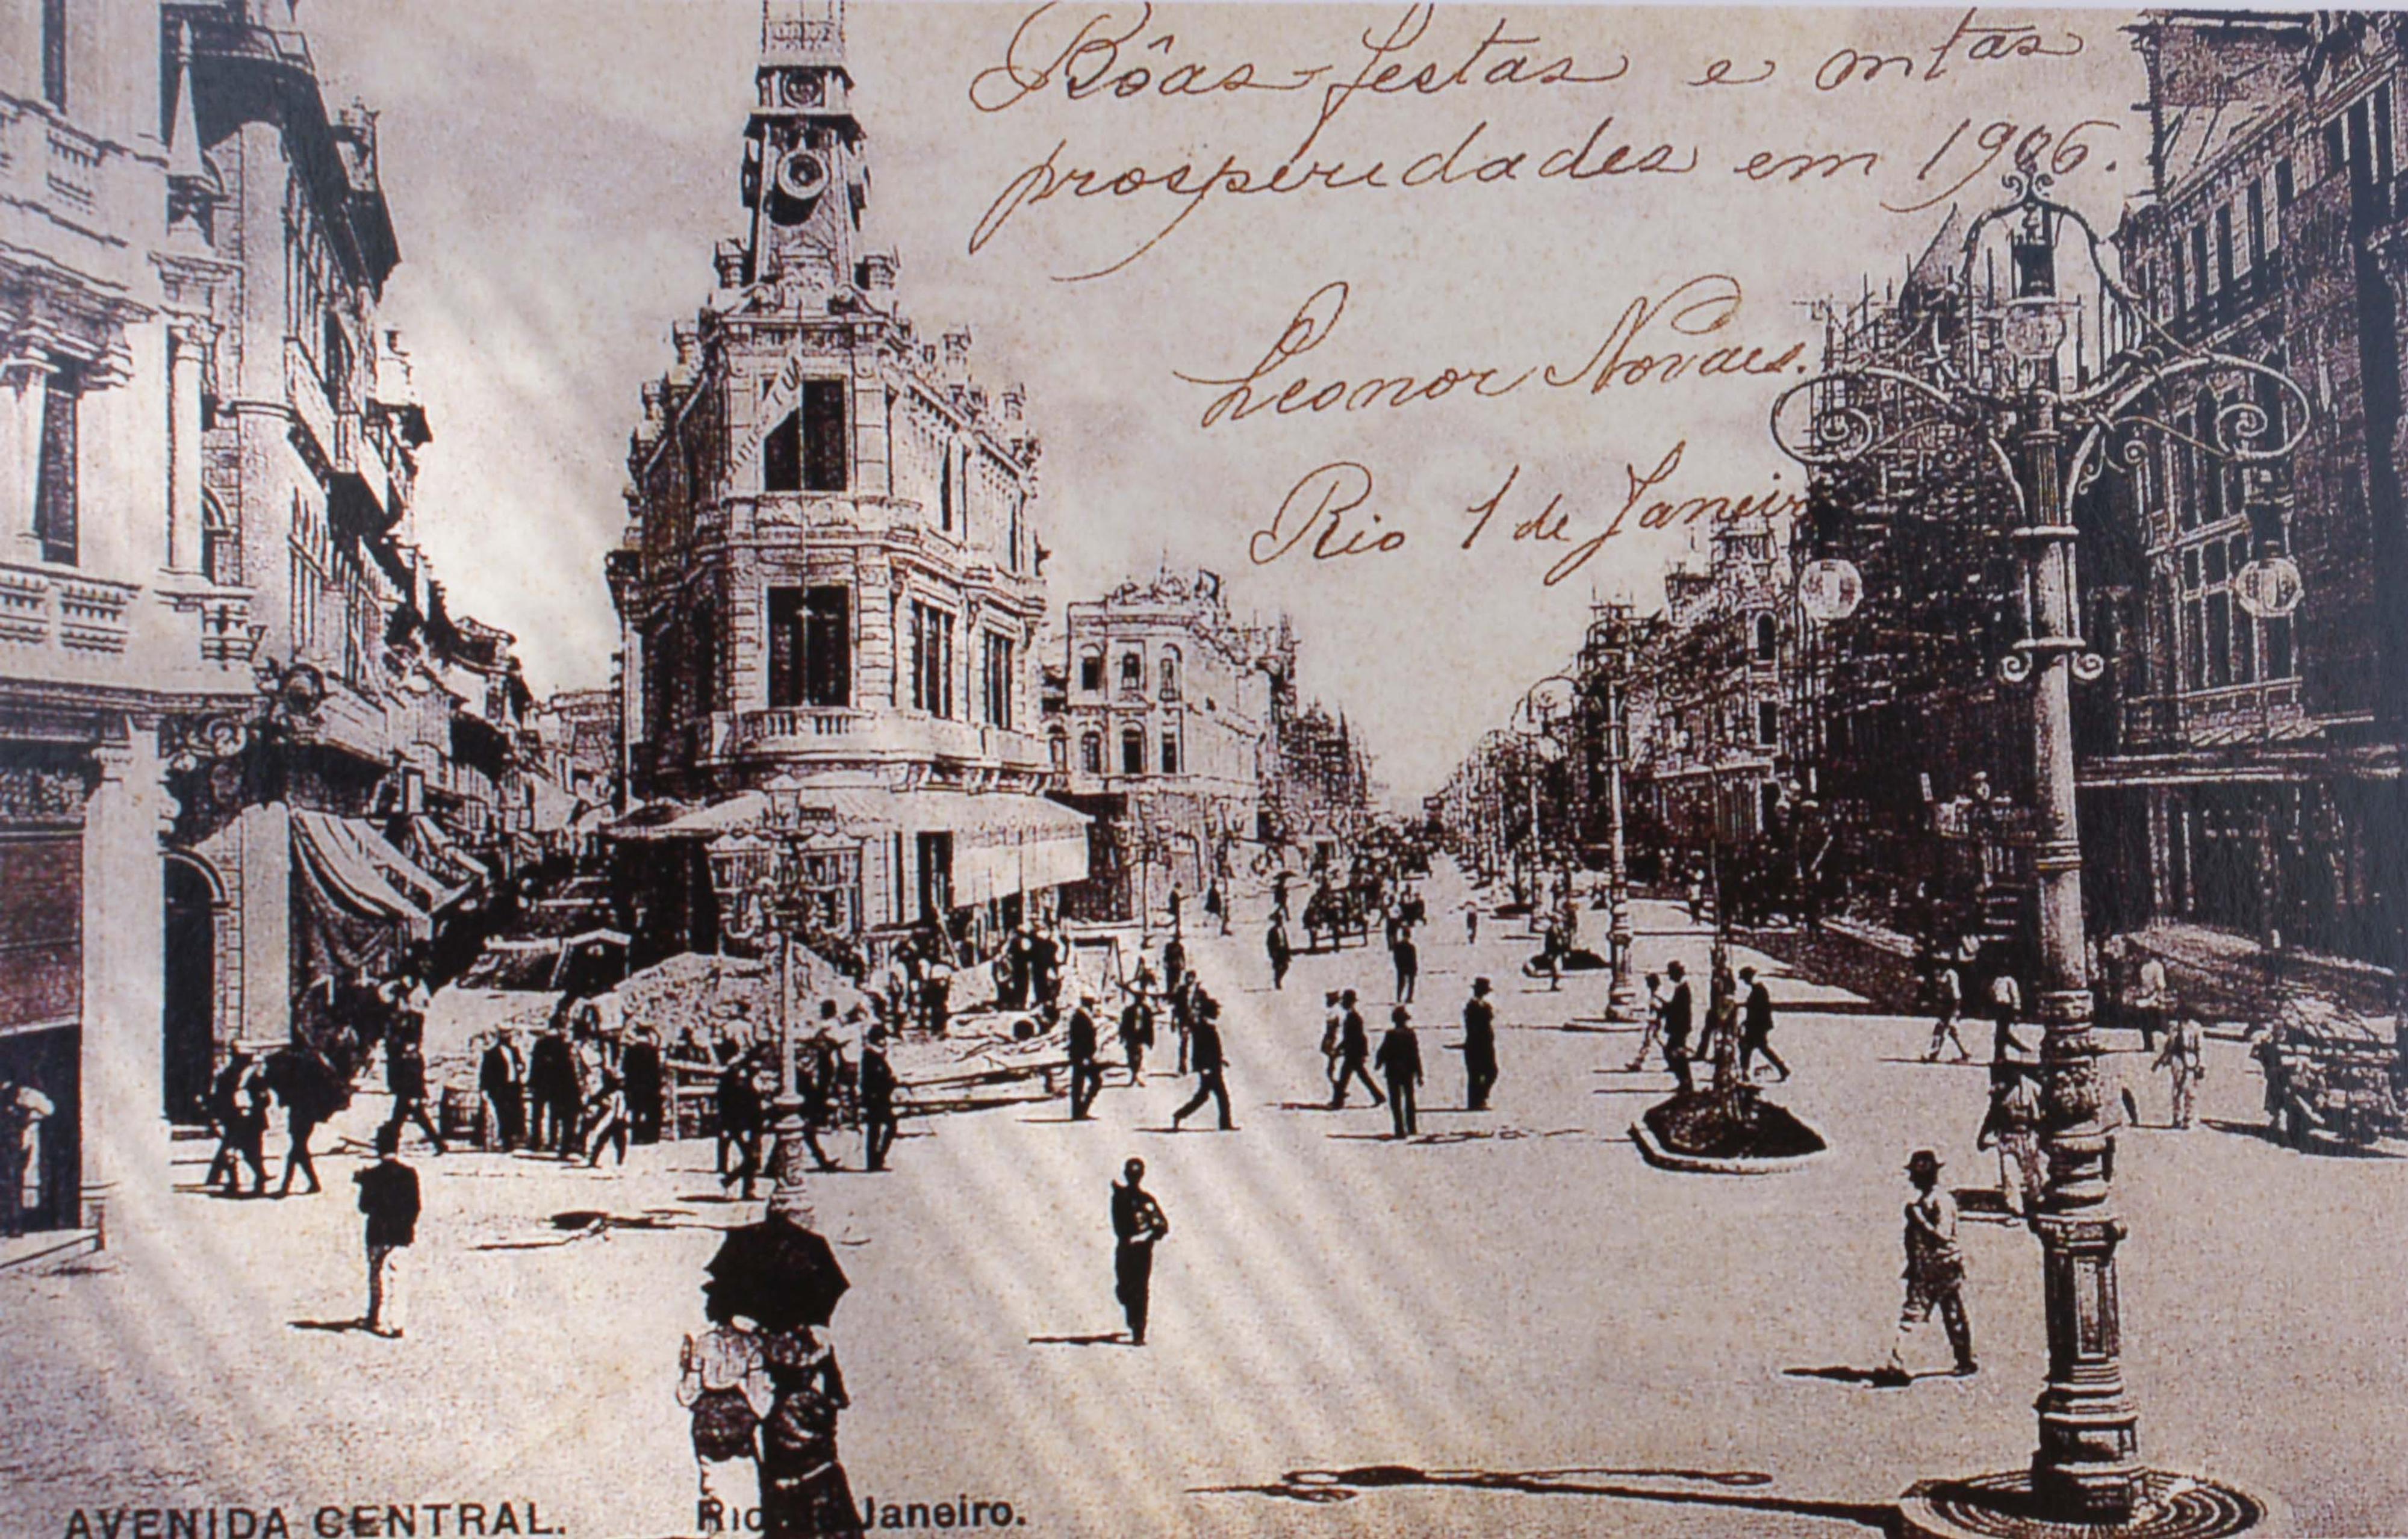 Bôas-festas e mtas
prosperidades em 1906.
Leonor Novaes.
Rio 1 de Janeiro
AVENIDA CENTRAL. Rio de Janeiro.